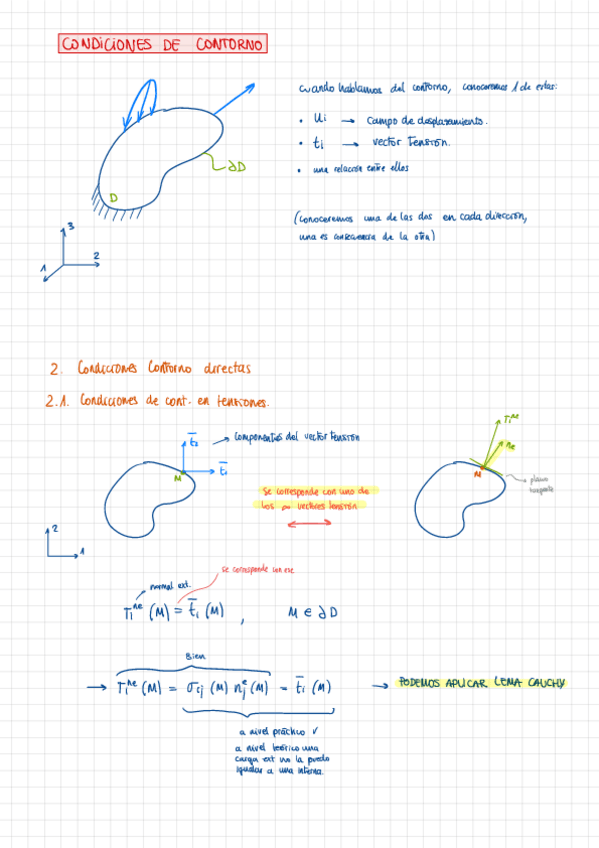 CONDICIONES DE CONTORNO
Cuando hablamos del contorno, conoceremos 1 de estas:
• ui → campo de desplazamiento.
• ti → vector Tensión.
• una relación entre ellos
∂D
D
(Conoceremos una de las dos en cada dirección,
una es consecuencia de la otra)
3
2
1
2. Condiciones Contorno directas
2.1. Condiciones de cont. en tensiones.
t̄2 → Componentes del vector tensión
t̄1
M
Se corresponde con uno de
los ∞ vectores tensión
Ti^ne
ne
M
plano
tangente
2
1
se corresponde con ese
normal ext.
Ti^ne (M) = t̄i (M) , M ∈ ∂D
Bien
→ Ti^ne (M) = σij (M) nj^e (M) = t̄i (M) → PODEMOS APLICAR LEMA CAUCHY
a nivel práctico ✓
a nivel teórico una
carga ext no la puedo
igualar a una interna.